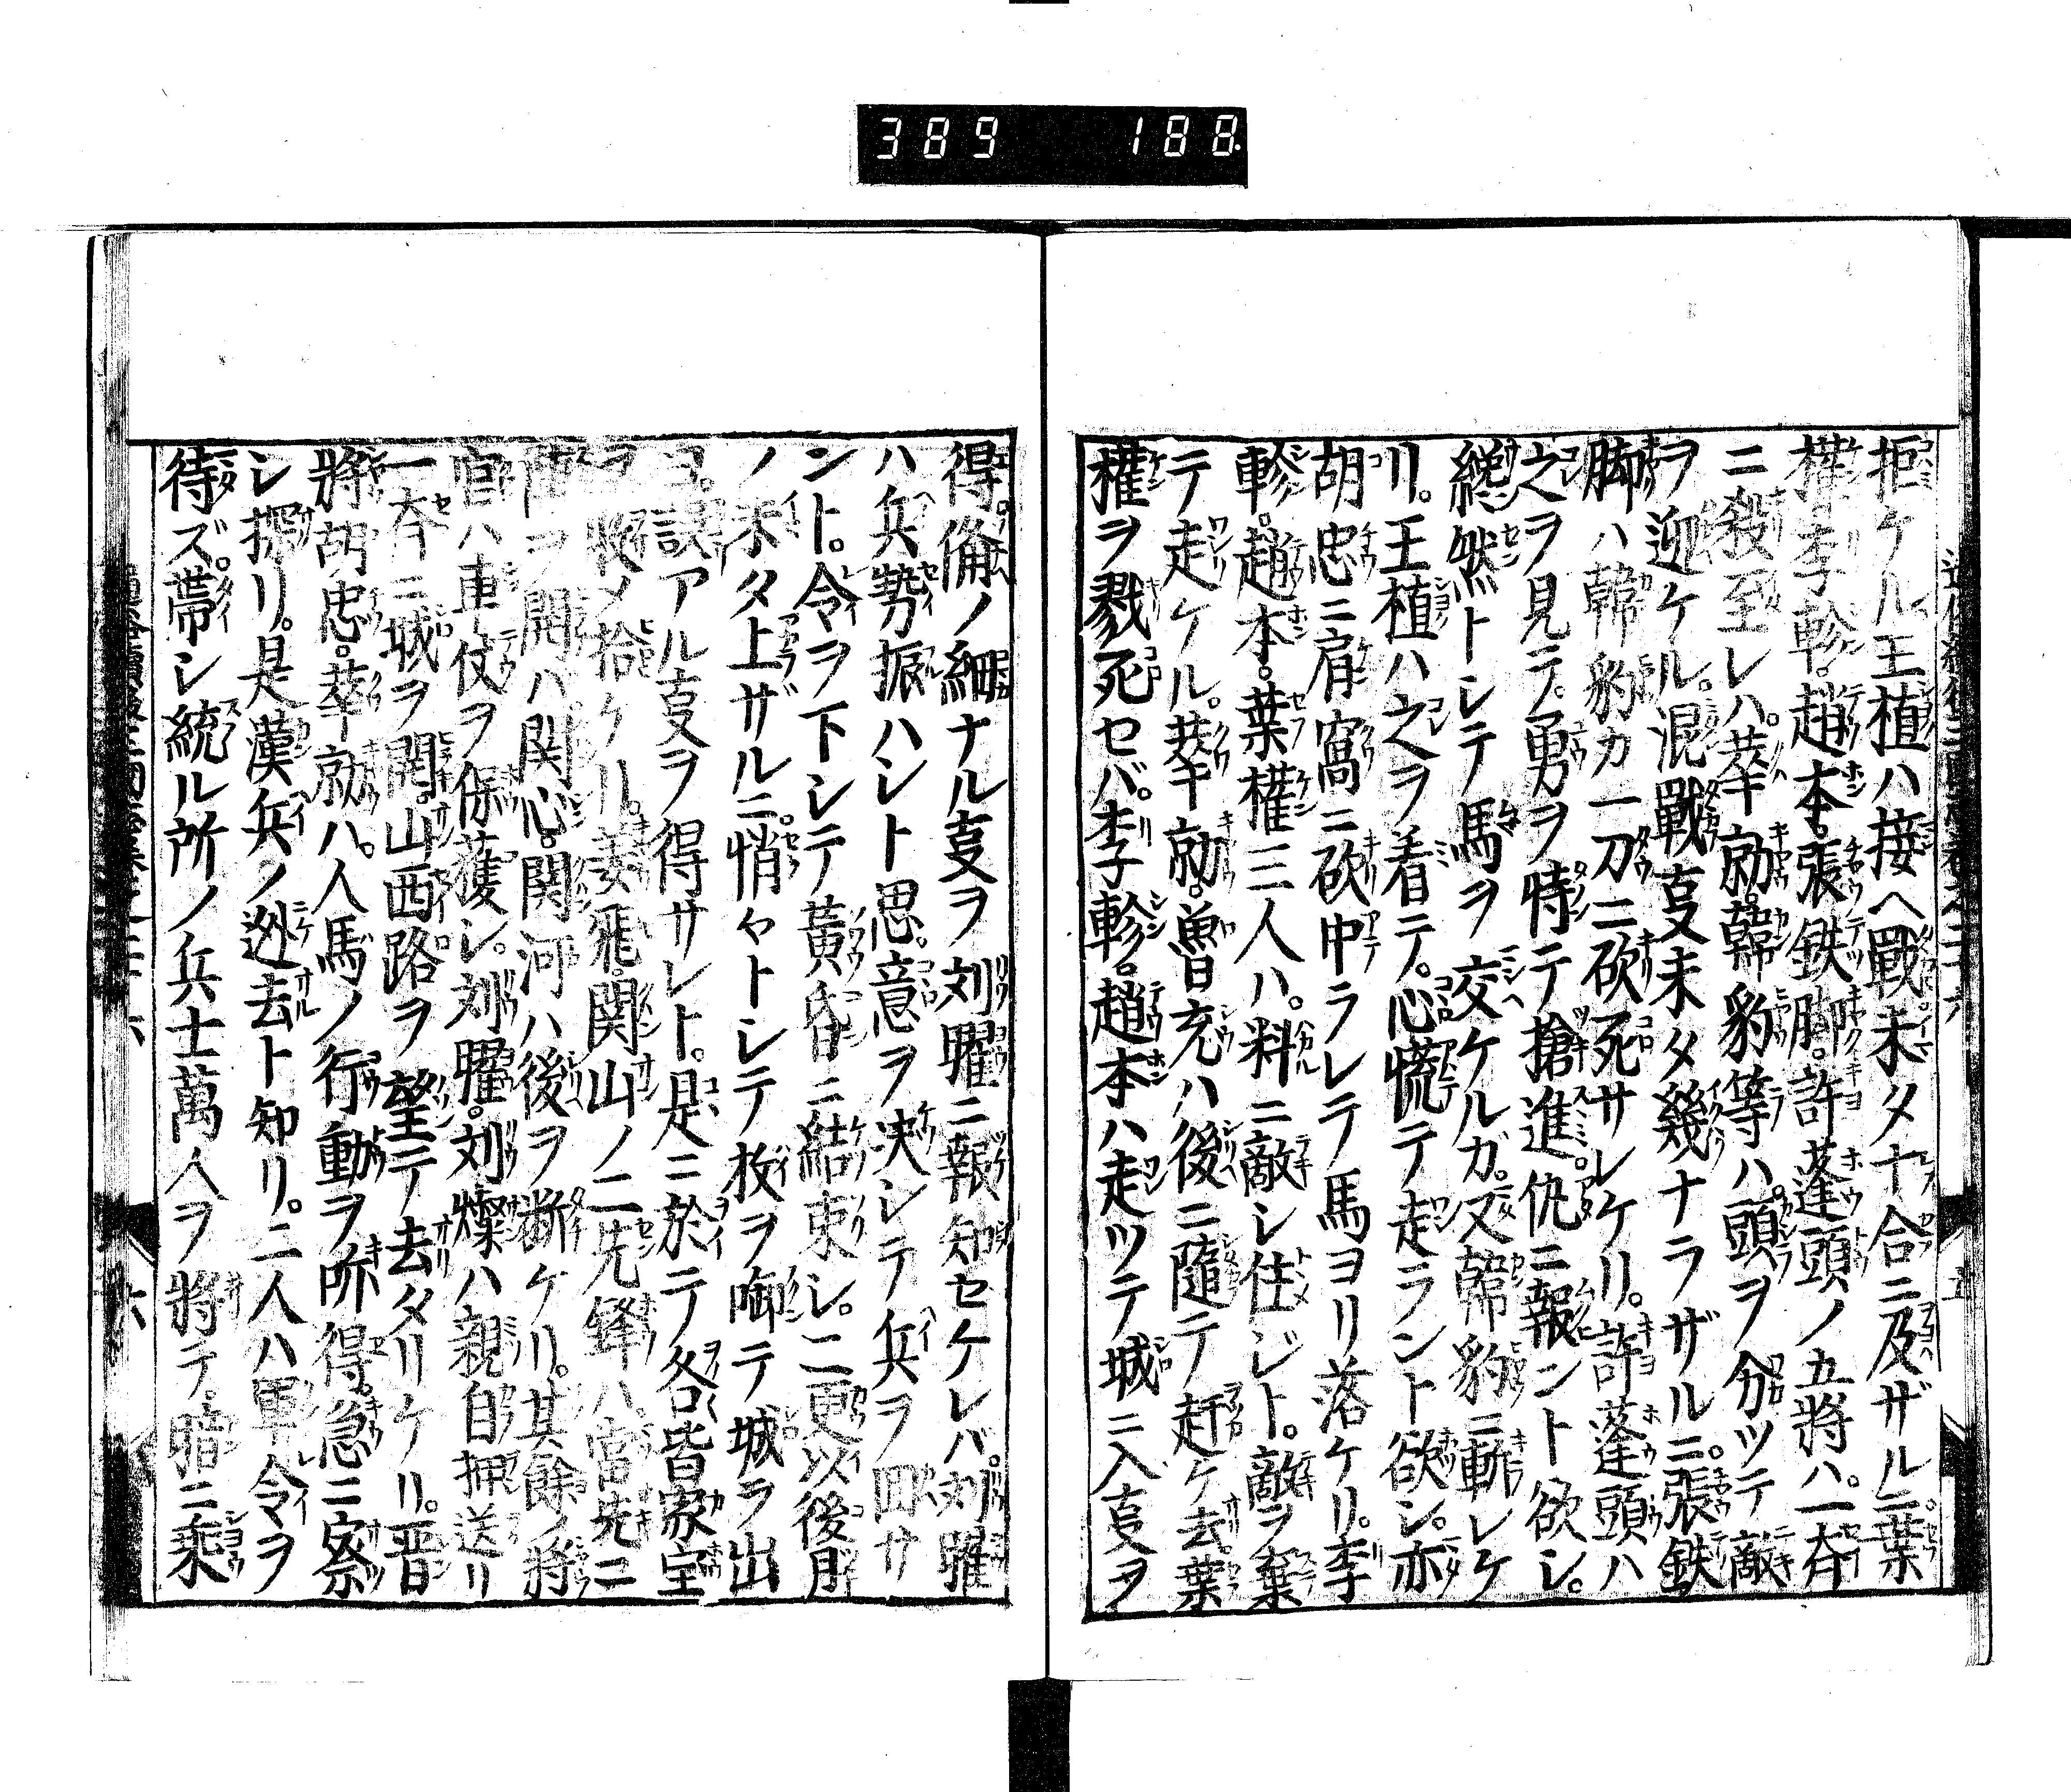 389 188
拒ケル王植ハ接ヘ戰未タ十合ニ及ザルニ葉
權李軫。趙本。張鉄脚。許蓬頭ノ五將ハ。一齊
ニ殺至レハ。莘勍。韓豹等ハ。頭ヲ分ツテ敵
ヲ迎ケル。混戰㕝未タ幾ナラザルニ。張鉄
脚ハ韓豹カ一刀ニ砍死サレケリ。許蓬頭ハ
之ヲ見テ。勇ヲ恃テ搶進。仇ニ報ント欲シ。
縱然トシテ馬ヲ交ケルガ。又韓豹ニ斬レケ
リ。王植ハ之ヲ着テ。心慌テ走ラント欲シ。亦
胡忠ニ肩窩ニ砍中ラレテ馬ヨリ落ケリ。李
軫。趙本。葉權三人ハ。料ニ敵シ住ジト。敵ヲ棄
テ走ケル。莘勍。魯充ハ後ニ隨テ赶ケ去。葉
權ヲ戮死セバ。李軫。趙本ハ走ツテ城ニ入㕝ヲ
得偹ノ細ナル㕝ヲ刘曜ニ報知セケレバ。刘曜
ハ兵勢振ハント思意ヲ决シテ兵ヲ回サ
ント。令ヲ下シテ黃昏ニ結束シ。二更以後月
ノ未タ上ザルニ。悄々トシテ枚ヲ啣テ城ヲ出
ヨ。誤アル㕝ヲ得サレト。是ニ於テ各皆家室
ヲ收メ拾ケリ。姜飛。関山ノ二先鋒ハ當先ニ
陣ヲ開ハ。関心。関河ハ後ヲ断ケリ。其餘ノ將
官ハ車仗ヲ保護シ。刘曜。刘燦ハ親自押送リ
一齊ニ城ヲ開。山西路ヲ望テ去タリケリ。晋
將胡忠。莘勍ハ。人馬ノ行動ヲ听得。急ニ密
シ探リ。是漢兵ノ迯去ト知リ。二人ハ軍令ヲ
待ズ。帶シ統ル所ノ兵士萬人ヲ將テ。暗ニ乘